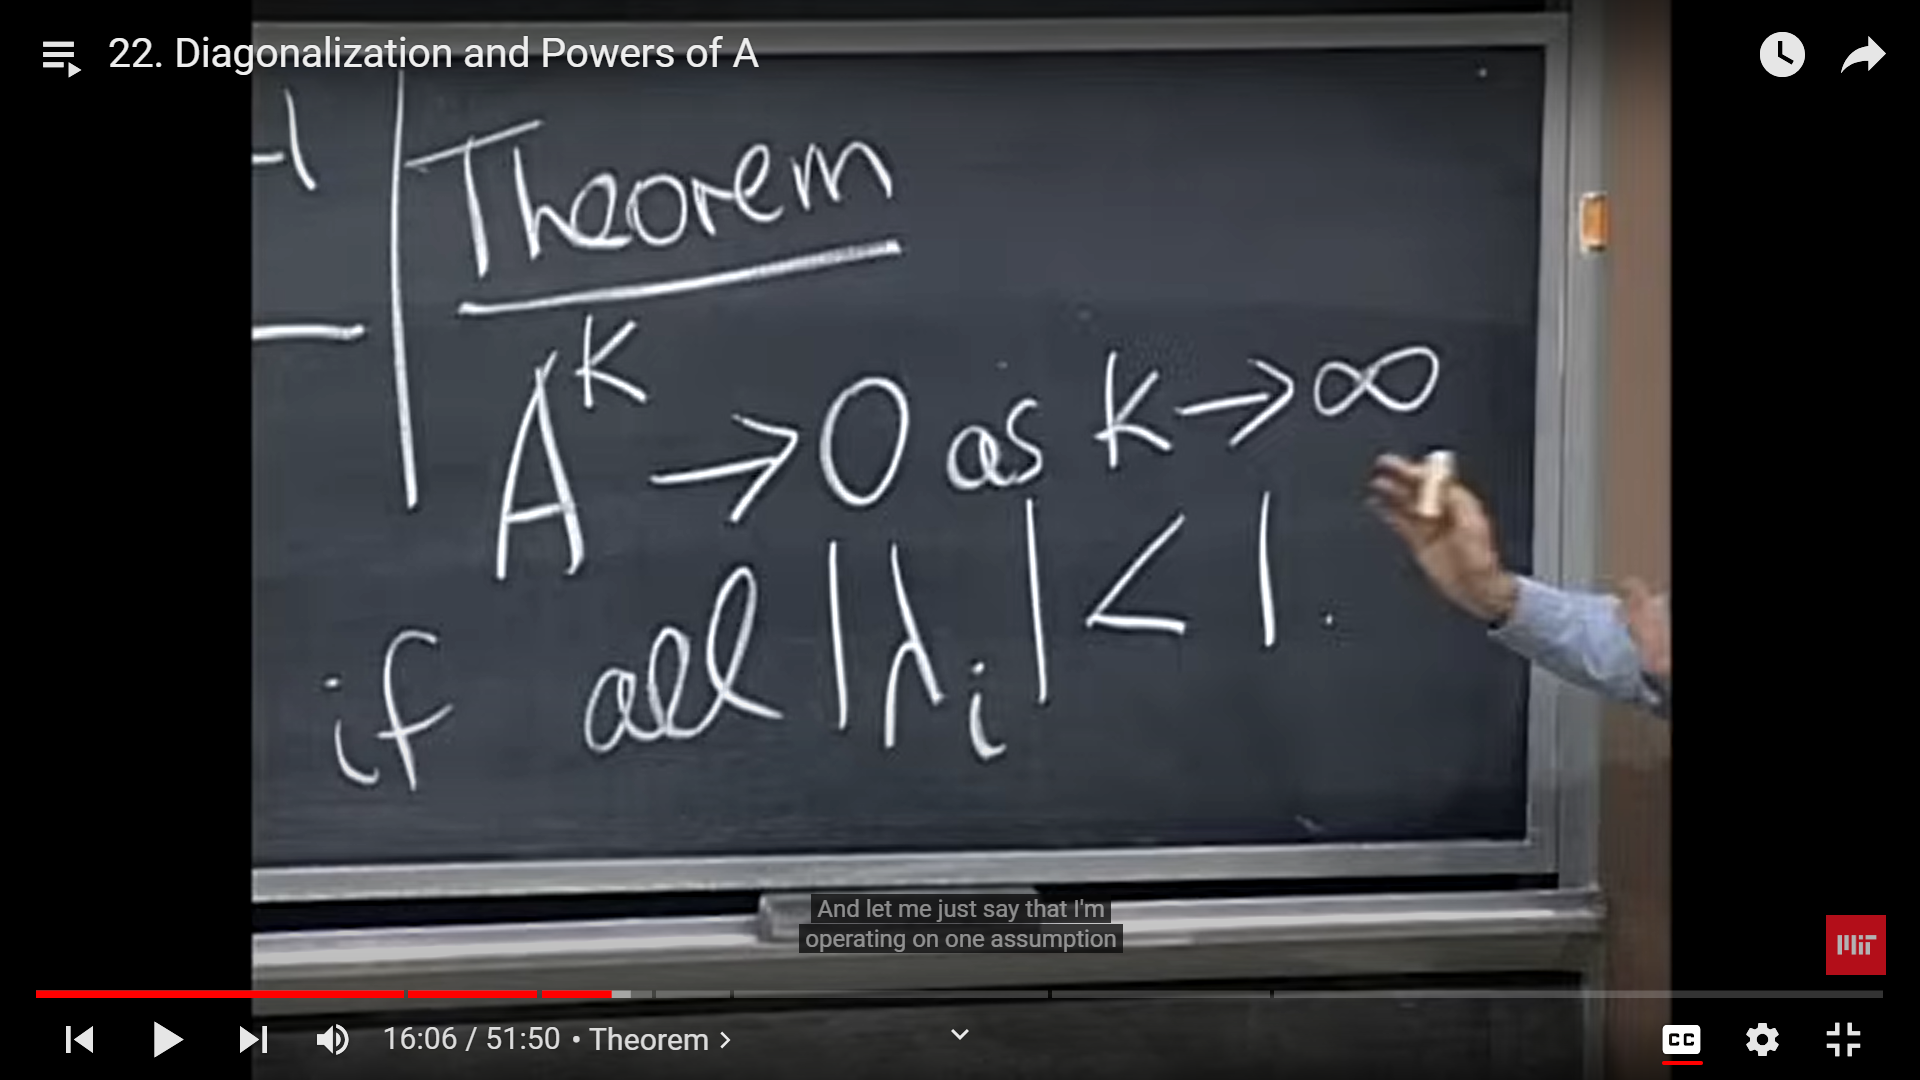 22. Diagonalization and Powers of A
-1
Theorem
A^K → 0 as k → ∞
if all |λ_i| < 1.
And let me just say that I'm
operating on one assumption
MIT
16:06 / 51:50 • Theorem >
CC